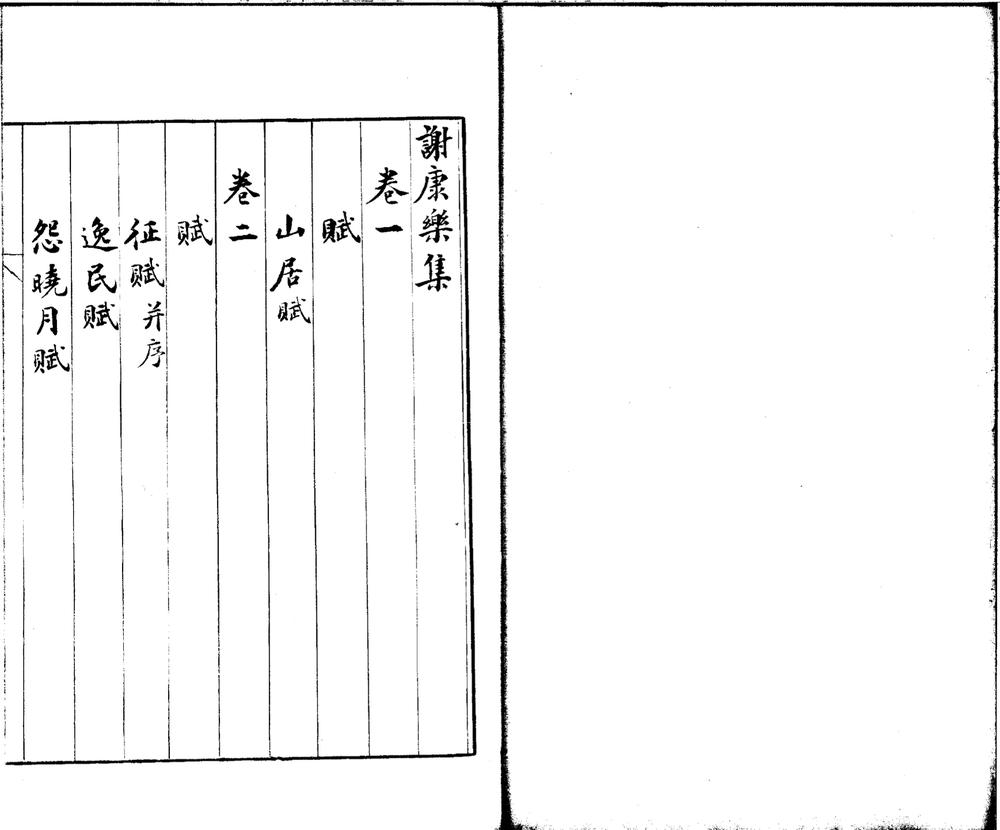 謝康樂集
卷一
賦
山居賦
卷二
賦
征賦并序
逸民賦
怨曉月賦